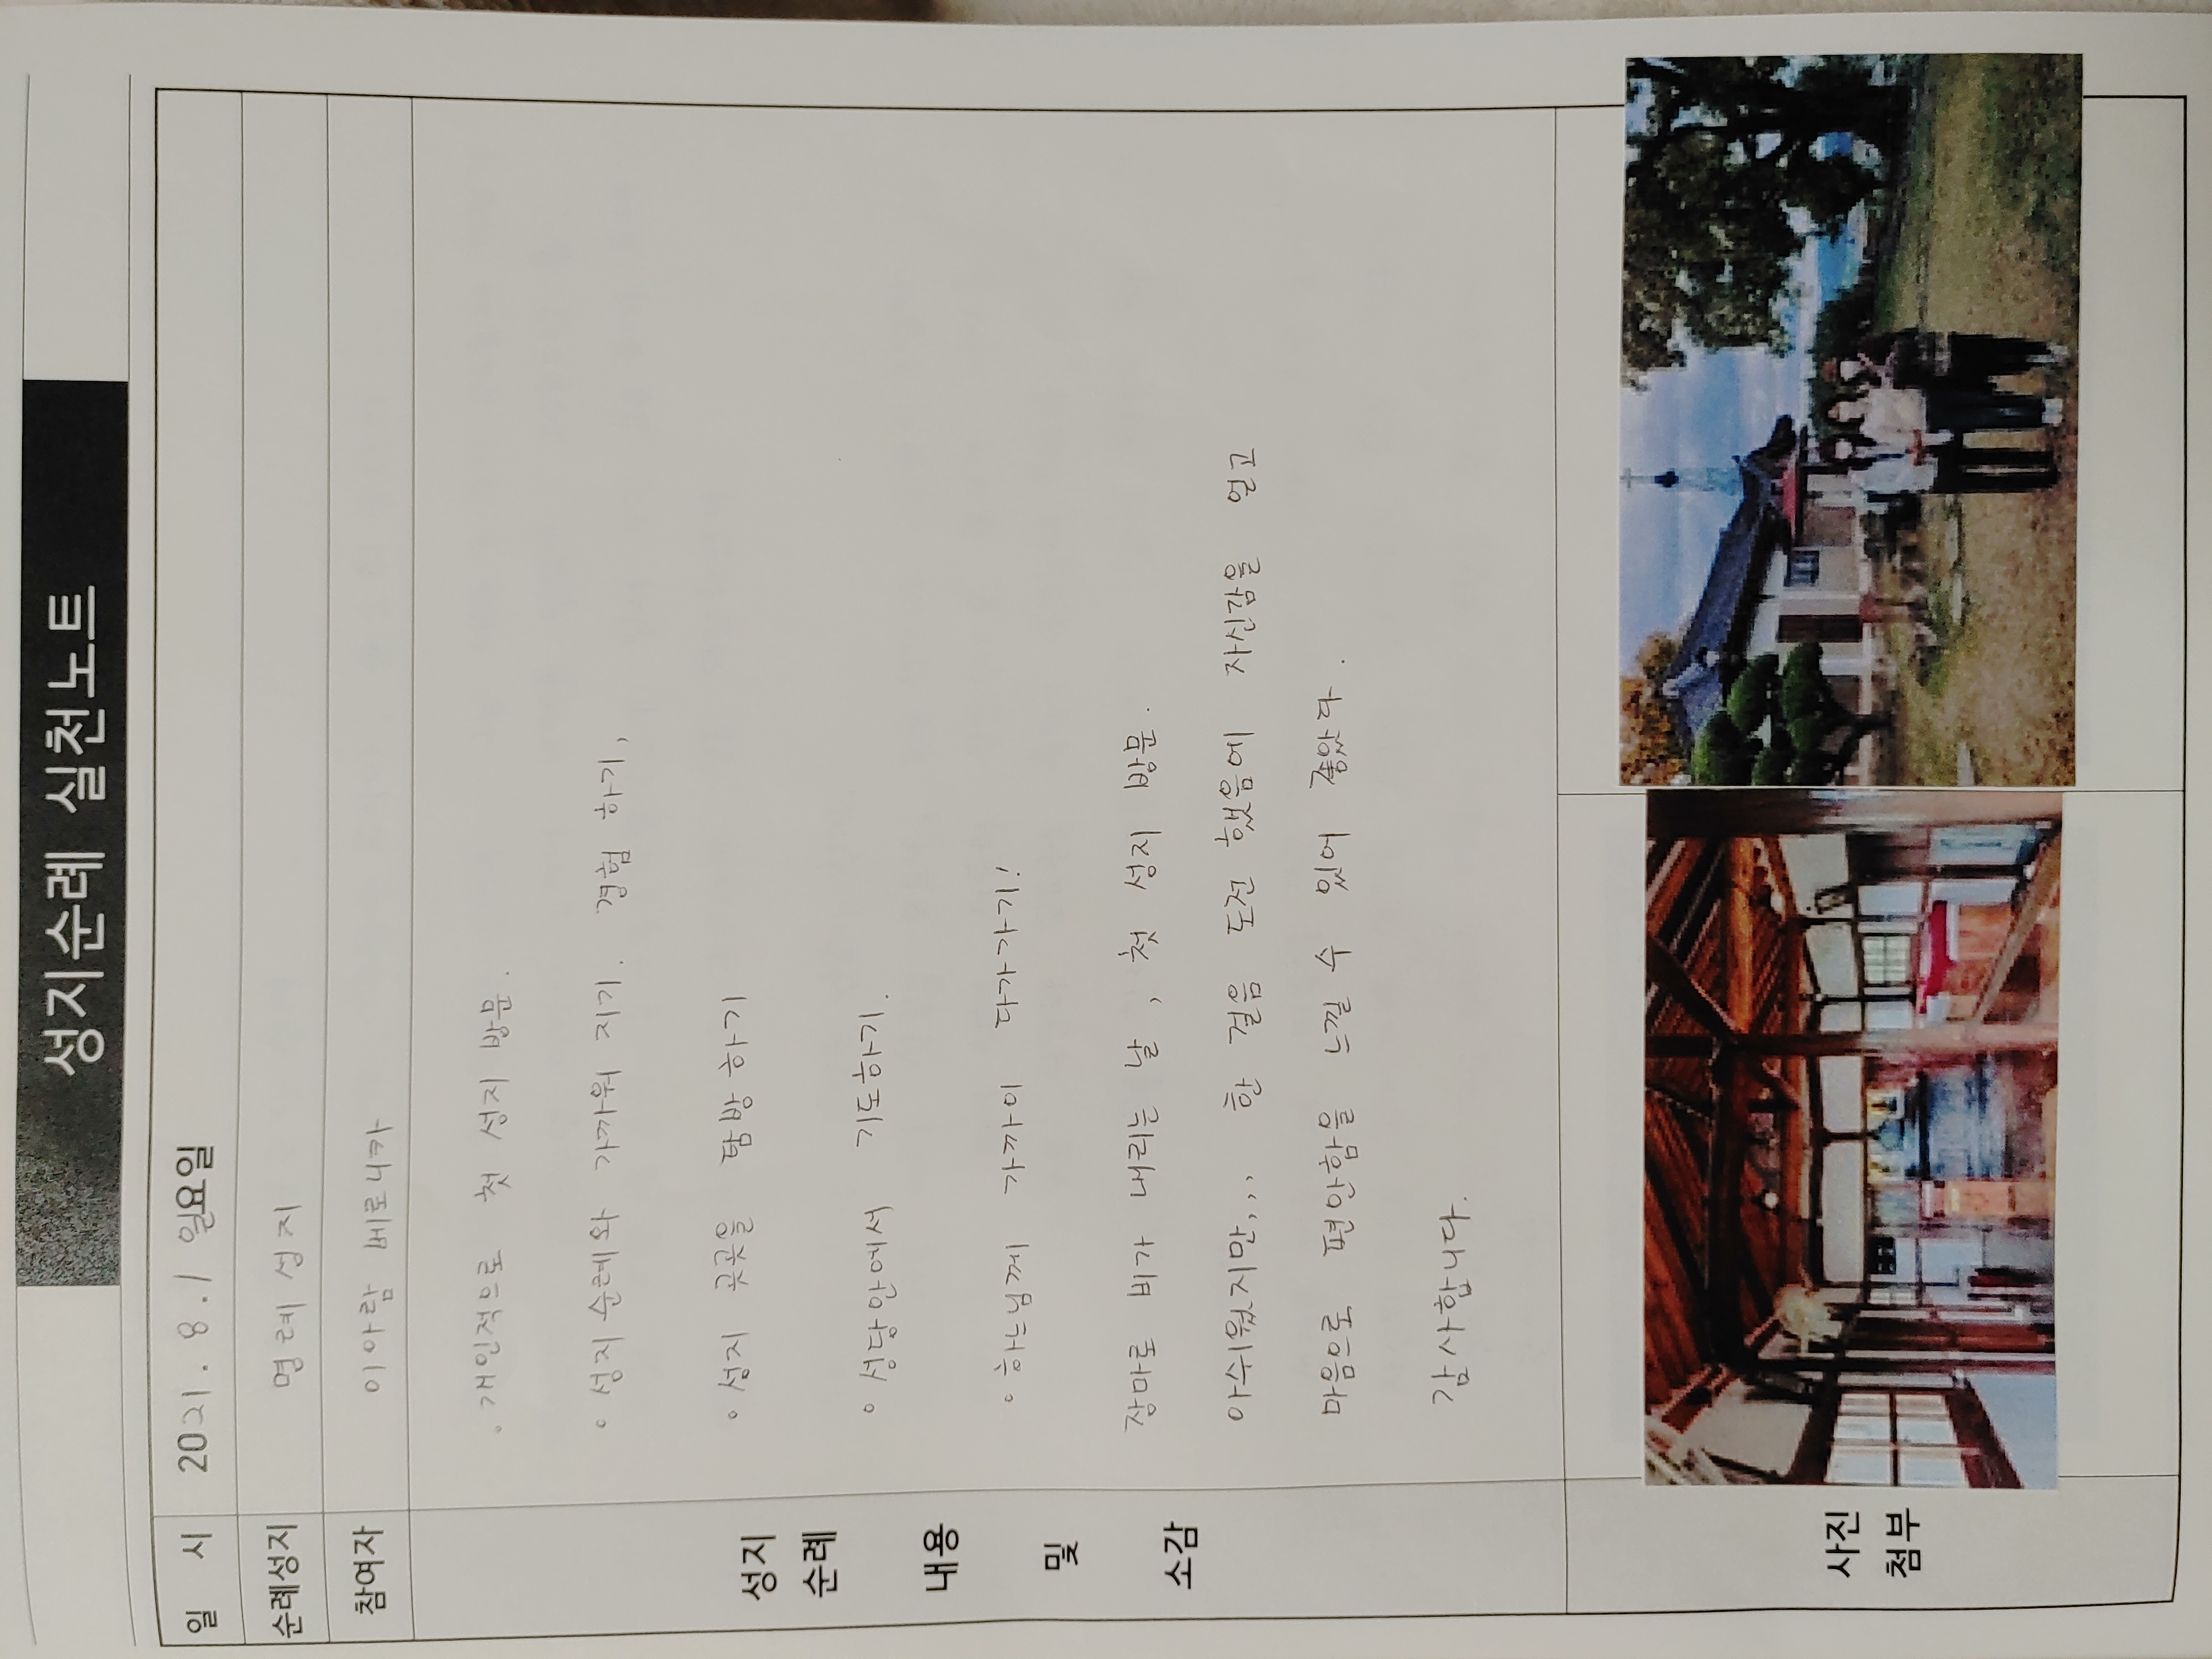 성지순례 실천노트
일 시 2021. 8. 1 일요일
순례성지 명례성지
참여자 이아람 베로니카
성지 순례 내용 및 소감
. 개인적으로 첫 성지 방문.
◦ 성지 순례와 가까워 지기. 경험 하기,
◦ 성지 곳곳을 탐방하기
◦ 성당안에서 기도하기.
◦ 하느님께 가까이 다가가기!
장마로 비가 내리는 날, 첫 성지 방문.
아쉬웠지만,,,, 한 걸음 도전 했음에 자신감을 얻고
마음으로 편안함을 느낄 수 있어 좋았다.
감사합니다.
사진 첨부